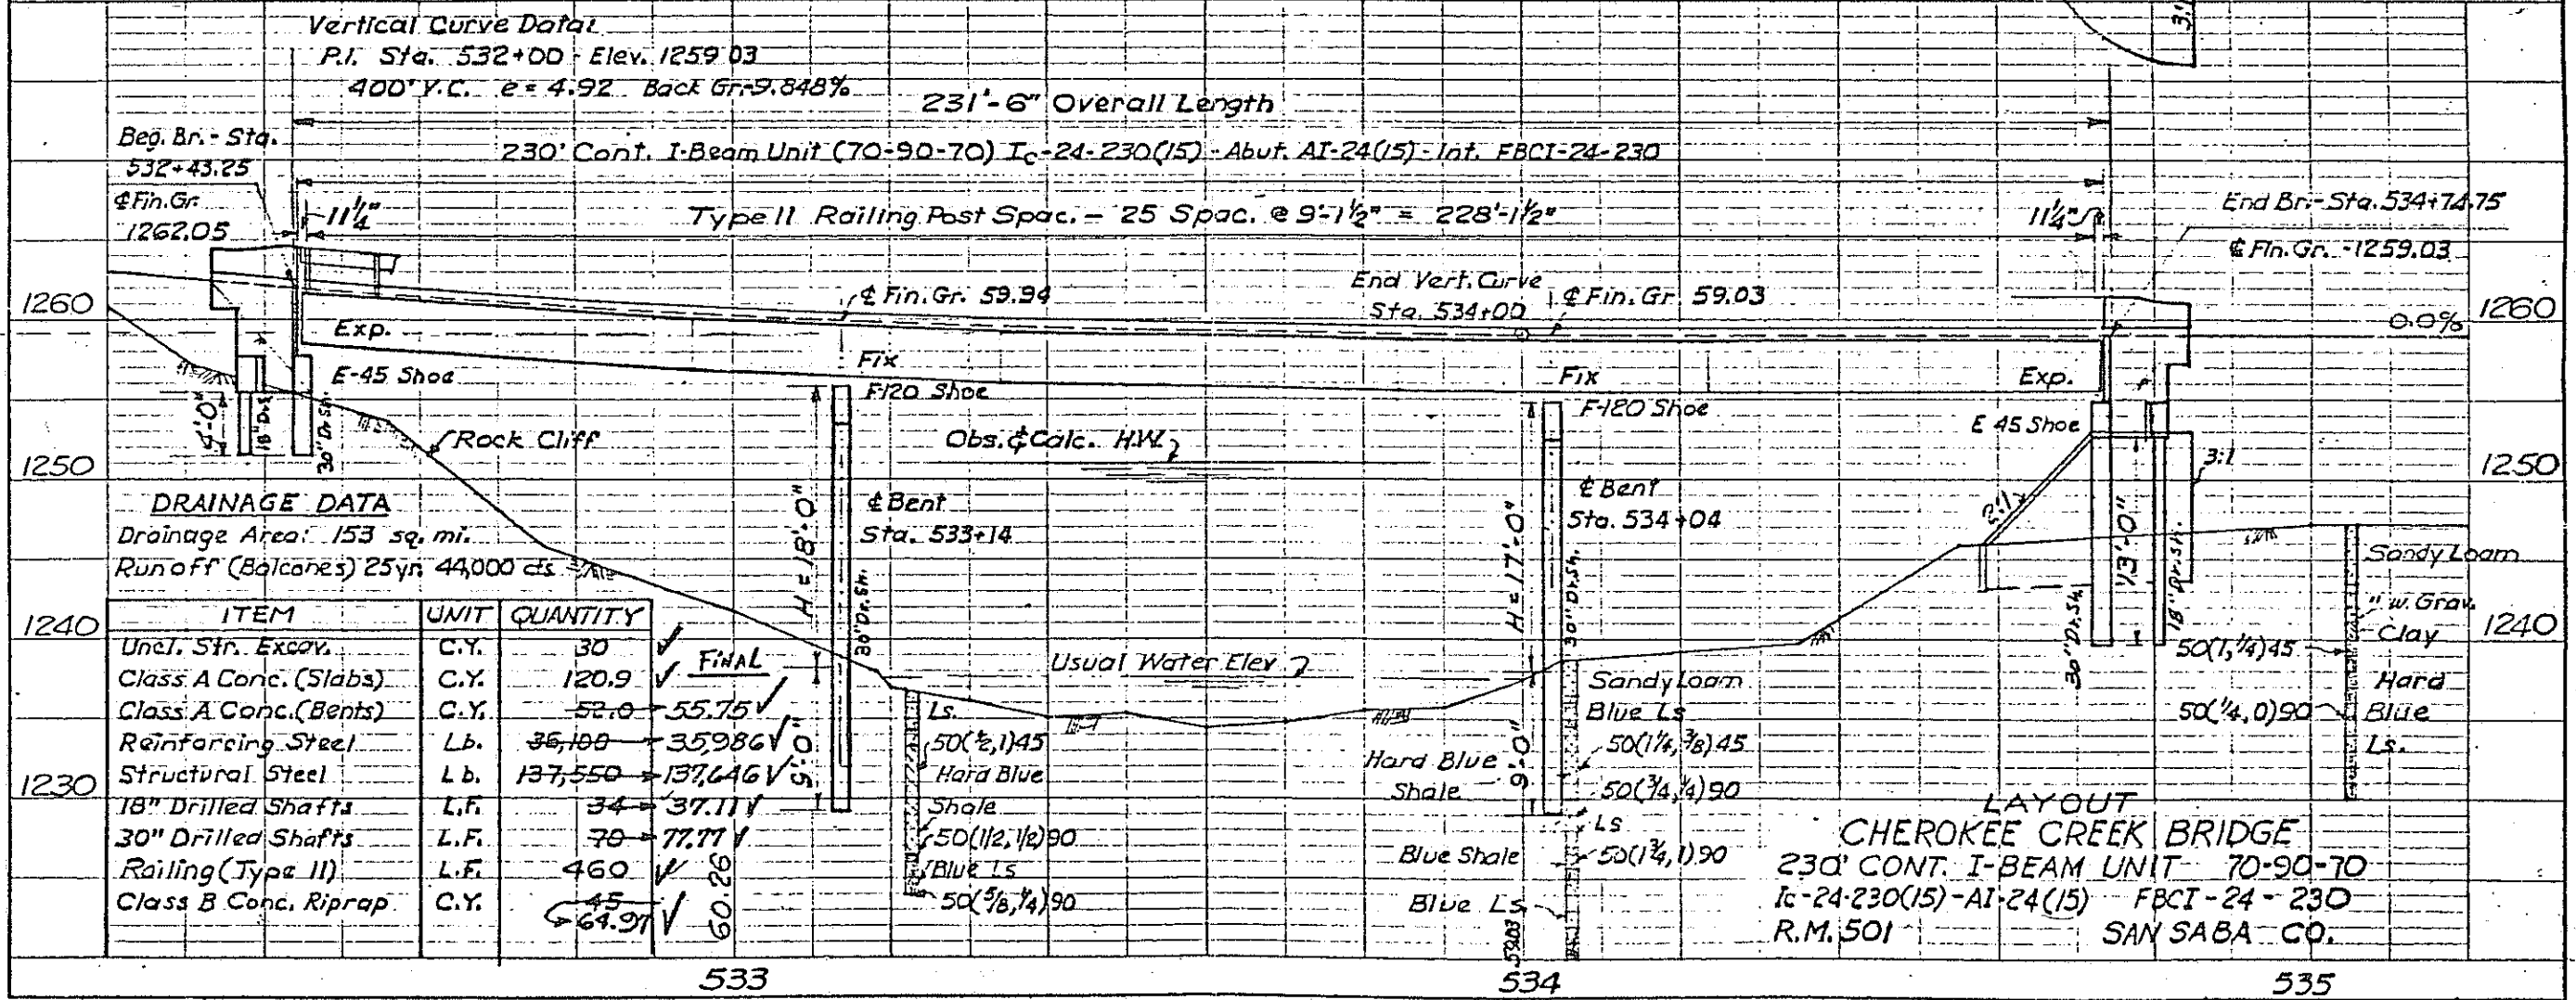 Vertical Curve Data:
P.I. Sta. 532+00 - Elev. 1259.03
400' V.C. e = 4.92 Back Gr-9.848%
3:1
231'-6" Overall Length
Beg. Br.- Sta.
532+43.25
230' Cont. I-Beam Unit (70-90-70) Ic-24-230(15) - Abut. AI-24(15) - Int. FBCI-24-230
℄ Fin. Gr.
1262.05
11¼"
Type II Railing Post Spac. - 25 Spac. @ 9'-1½" = 228'-1½"
11¼"
End Br.- Sta. 534+74.75
℄ Fin. Gr. - 1259.03
℄ Fin. Gr. 59.94
End Vert. Curve
Sta. 534+00
℄ Fin. Gr. 59.03
1260
1260
0.0%
Exp.
Fix
Fix
Exp.
E-45 Shoe
F-120 Shoe
F-120 Shoe
E 45 Shoe
4'-0"
18" Dr.s.
30" Dr.sh.
Rock Cliff
Obs. & Calc. H.W.
1250
1250
3:1
2:1
DRAINAGE DATA
Drainage Area: 153 sq. mi.
Runoff (Balcones) 25yr. 44,000 cfs
H = 18'-0"
℄ Bent
Sta. 533+14
30" Dr.Sh.
H = 17'-0"
℄ Bent
Sta. 534+04
30" Dr.Sh.
13'-0"
30" Dr.Sh.
18" Dr.sh.
Sandy Loam
" w. Grav.
Clay
1240
1240
50(1,¼)45
Hard
50(¼,0)90
Blue
Ls.
ITEM UNIT QUANTITY
Uncl. Str. Excav. C.Y. 30 ✓
FINAL
Class A Conc. (Slabs) C.Y. 120.9 ✓
Class A Conc. (Bents) C.Y. 52.0 55.75 ✓
Reinforcing Steel Lb. 36,100 35,986 ✓
Structural Steel Lb. 137,550 137,646 ✓
18" Drilled Shafts L.F. 34 37.11 ✓
30" Drilled Shafts L.F. 70 77.77 ✓
Railing (Type II) L.F. 460 ✓
Class B Conc. Riprap C.Y. 45
64.97 ✓
60.26
1230
9'-0"
Usual Water Elev
Ls.
50(½,1)45
Hard Blue
Shale
50(1/2,1/2)90
Blue Ls
50(⅝,¼)90
Sandy Loam
Blue Ls
50(1¼,⅜)45
Hard Blue
Shale
50(¾,¼)90
Ls
Blue Shale
50(1¾,1)90
Blue Ls
LAYOUT
CHEROKEE CREEK BRIDGE
230' CONT. I-BEAM UNIT 70-90-70
Ic-24-230(15)-AI-24(15) FBCI-24-230
R.M. 501 SAN SABA CO.
533
534
535